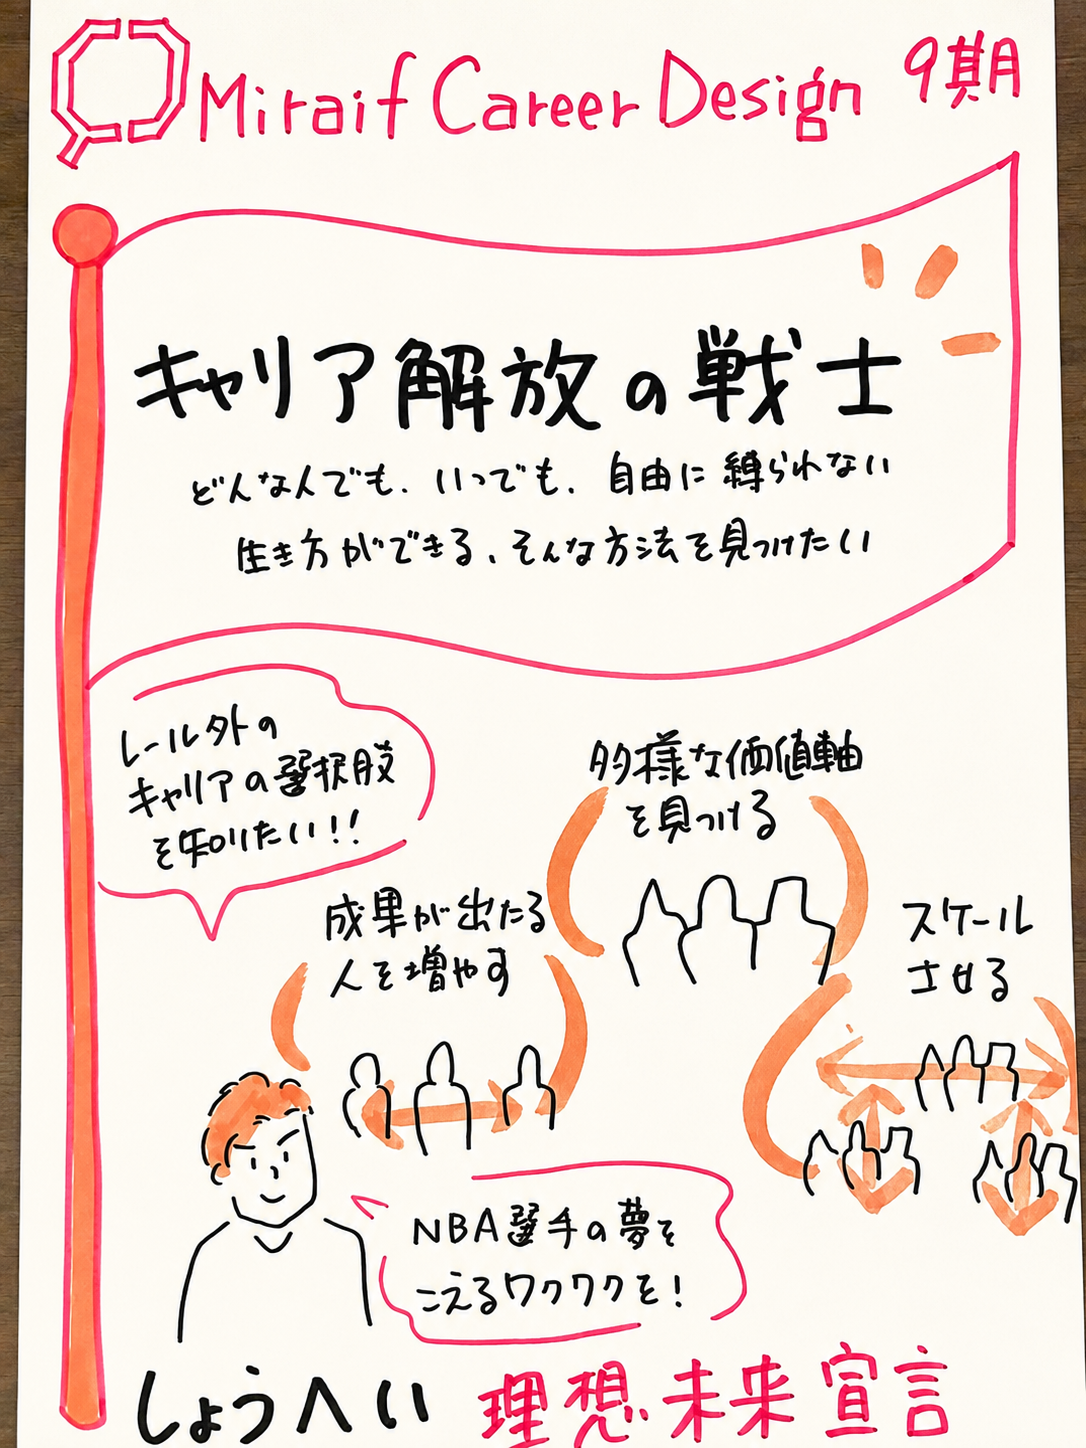 Miraif Career Design 9期
キャリア解放の戦士
どんな人でも、いつでも、自由に縛られない
生き方ができる、そんな方法を見つけたい
レール外の
キャリアの選択肢
を知りたい!!
多様な価値軸
を見つける
成果が出たる
人を増やす
スケール
させる
NBA選手の夢を
こえるワクワクを!
しょうへい 理想未来宣言